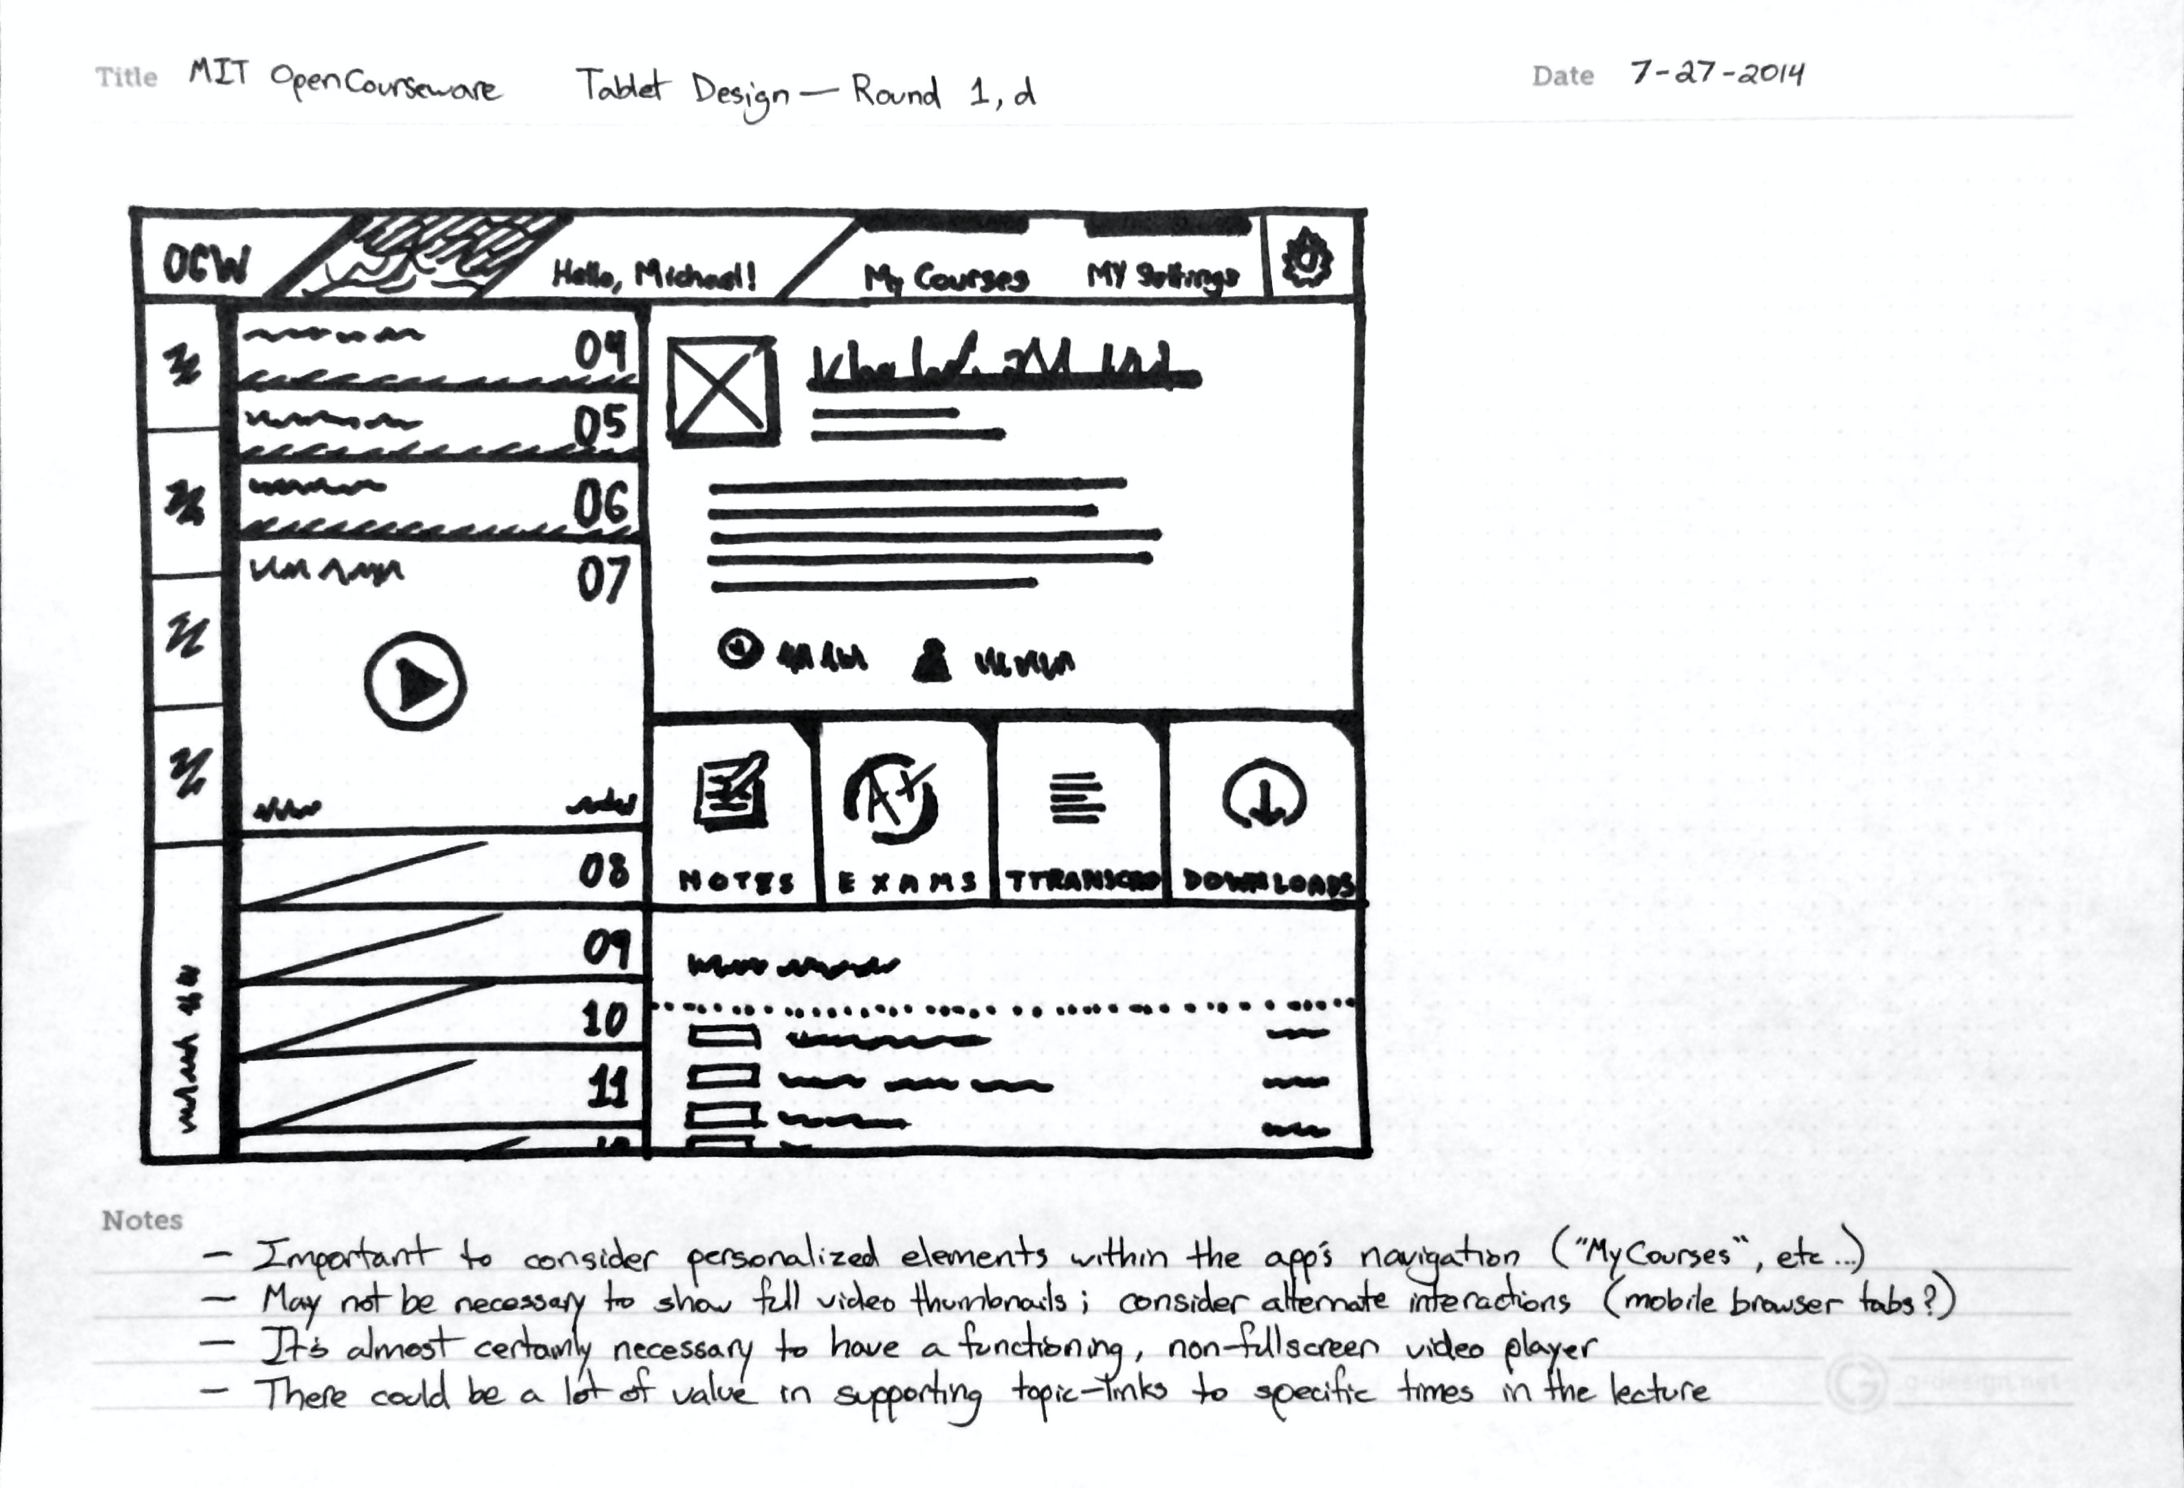 Title MIT OpenCourseware Tablet Design — Round 1, d
Date 7-27-2014
OCW
Hello, Michael!
My Courses
MY Settings
04
05
06
07
08
09
10
11
NOTES
EXAMS
DOWNLOADS
Notes
— Important to consider personalized elements within the app's navigation ("My Courses", etc...)
— May not be necessary to show full video thumbnails; consider alternate interactions (mobile browser tabs?)
— It's almost certainly necessary to have a functioning, non-fullscreen video player
— There could be a lot of value in supporting topic-links to specific times in the lecture
g-design.net